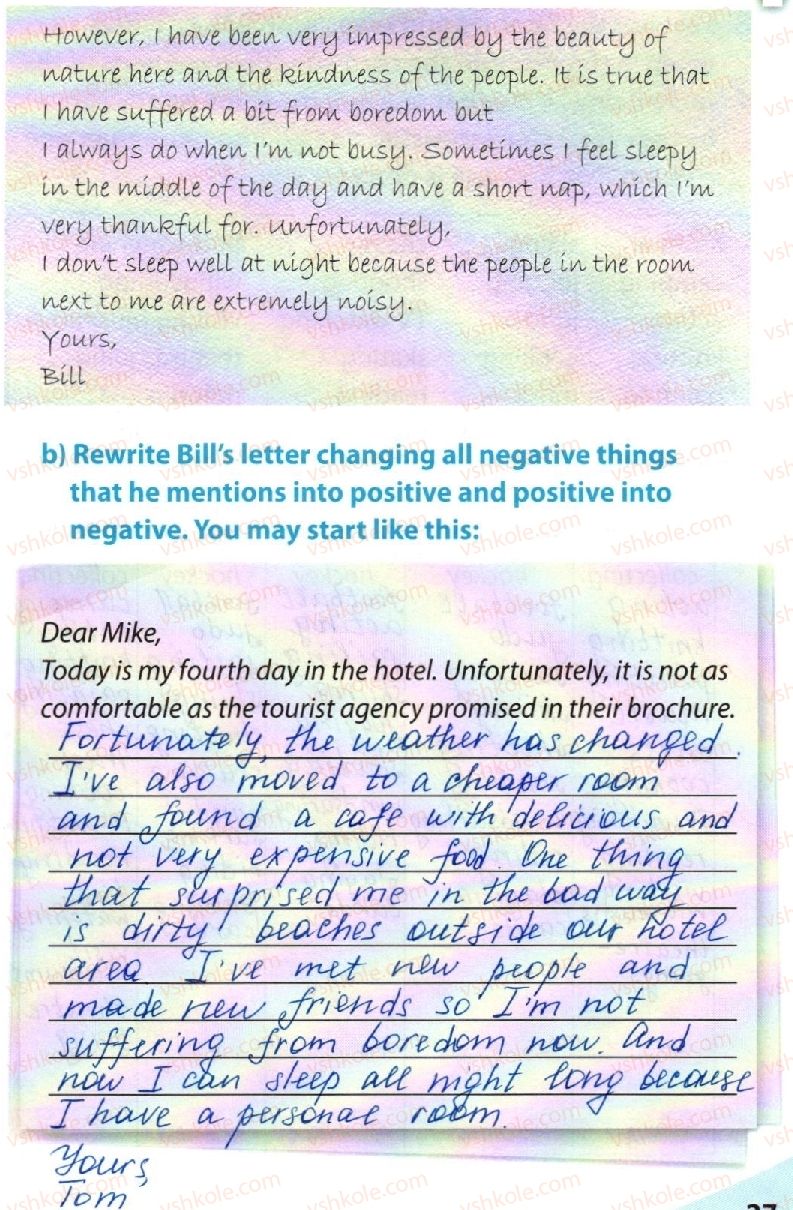 However, I have been very impressed by the beauty of
nature here and the kindness of the people. It is true that
I have suffered a bit from boredom but
I always do when I'm not busy. Sometimes I feel sleepy
in the middle of the day and have a short nap, which I'm
very thankful for. Unfortunately,
I don't sleep well at night because the people in the room
next to me are extremely noisy.
Yours,
Bill
b) Rewrite Bill's letter changing all negative things
that he mentions into positive and positive into
negative. You may start like this:
Dear Mike,
Today is my fourth day in the hotel. Unfortunately, it is not as
comfortable as the tourist agency promised in their brochure.
Fortunately, the weather has changed.
I've also moved to a cheaper room
and found a cafe with delicious and
not very expensive food One thing
that surprised me in the bad way
is dirty beaches outside our hotel
area I've met new people and
made new friends so I'm not
suffering from boredom now. And
now I can sleep all night long because
I have a personal room.
Yours,
Tom
27
vshkole.com